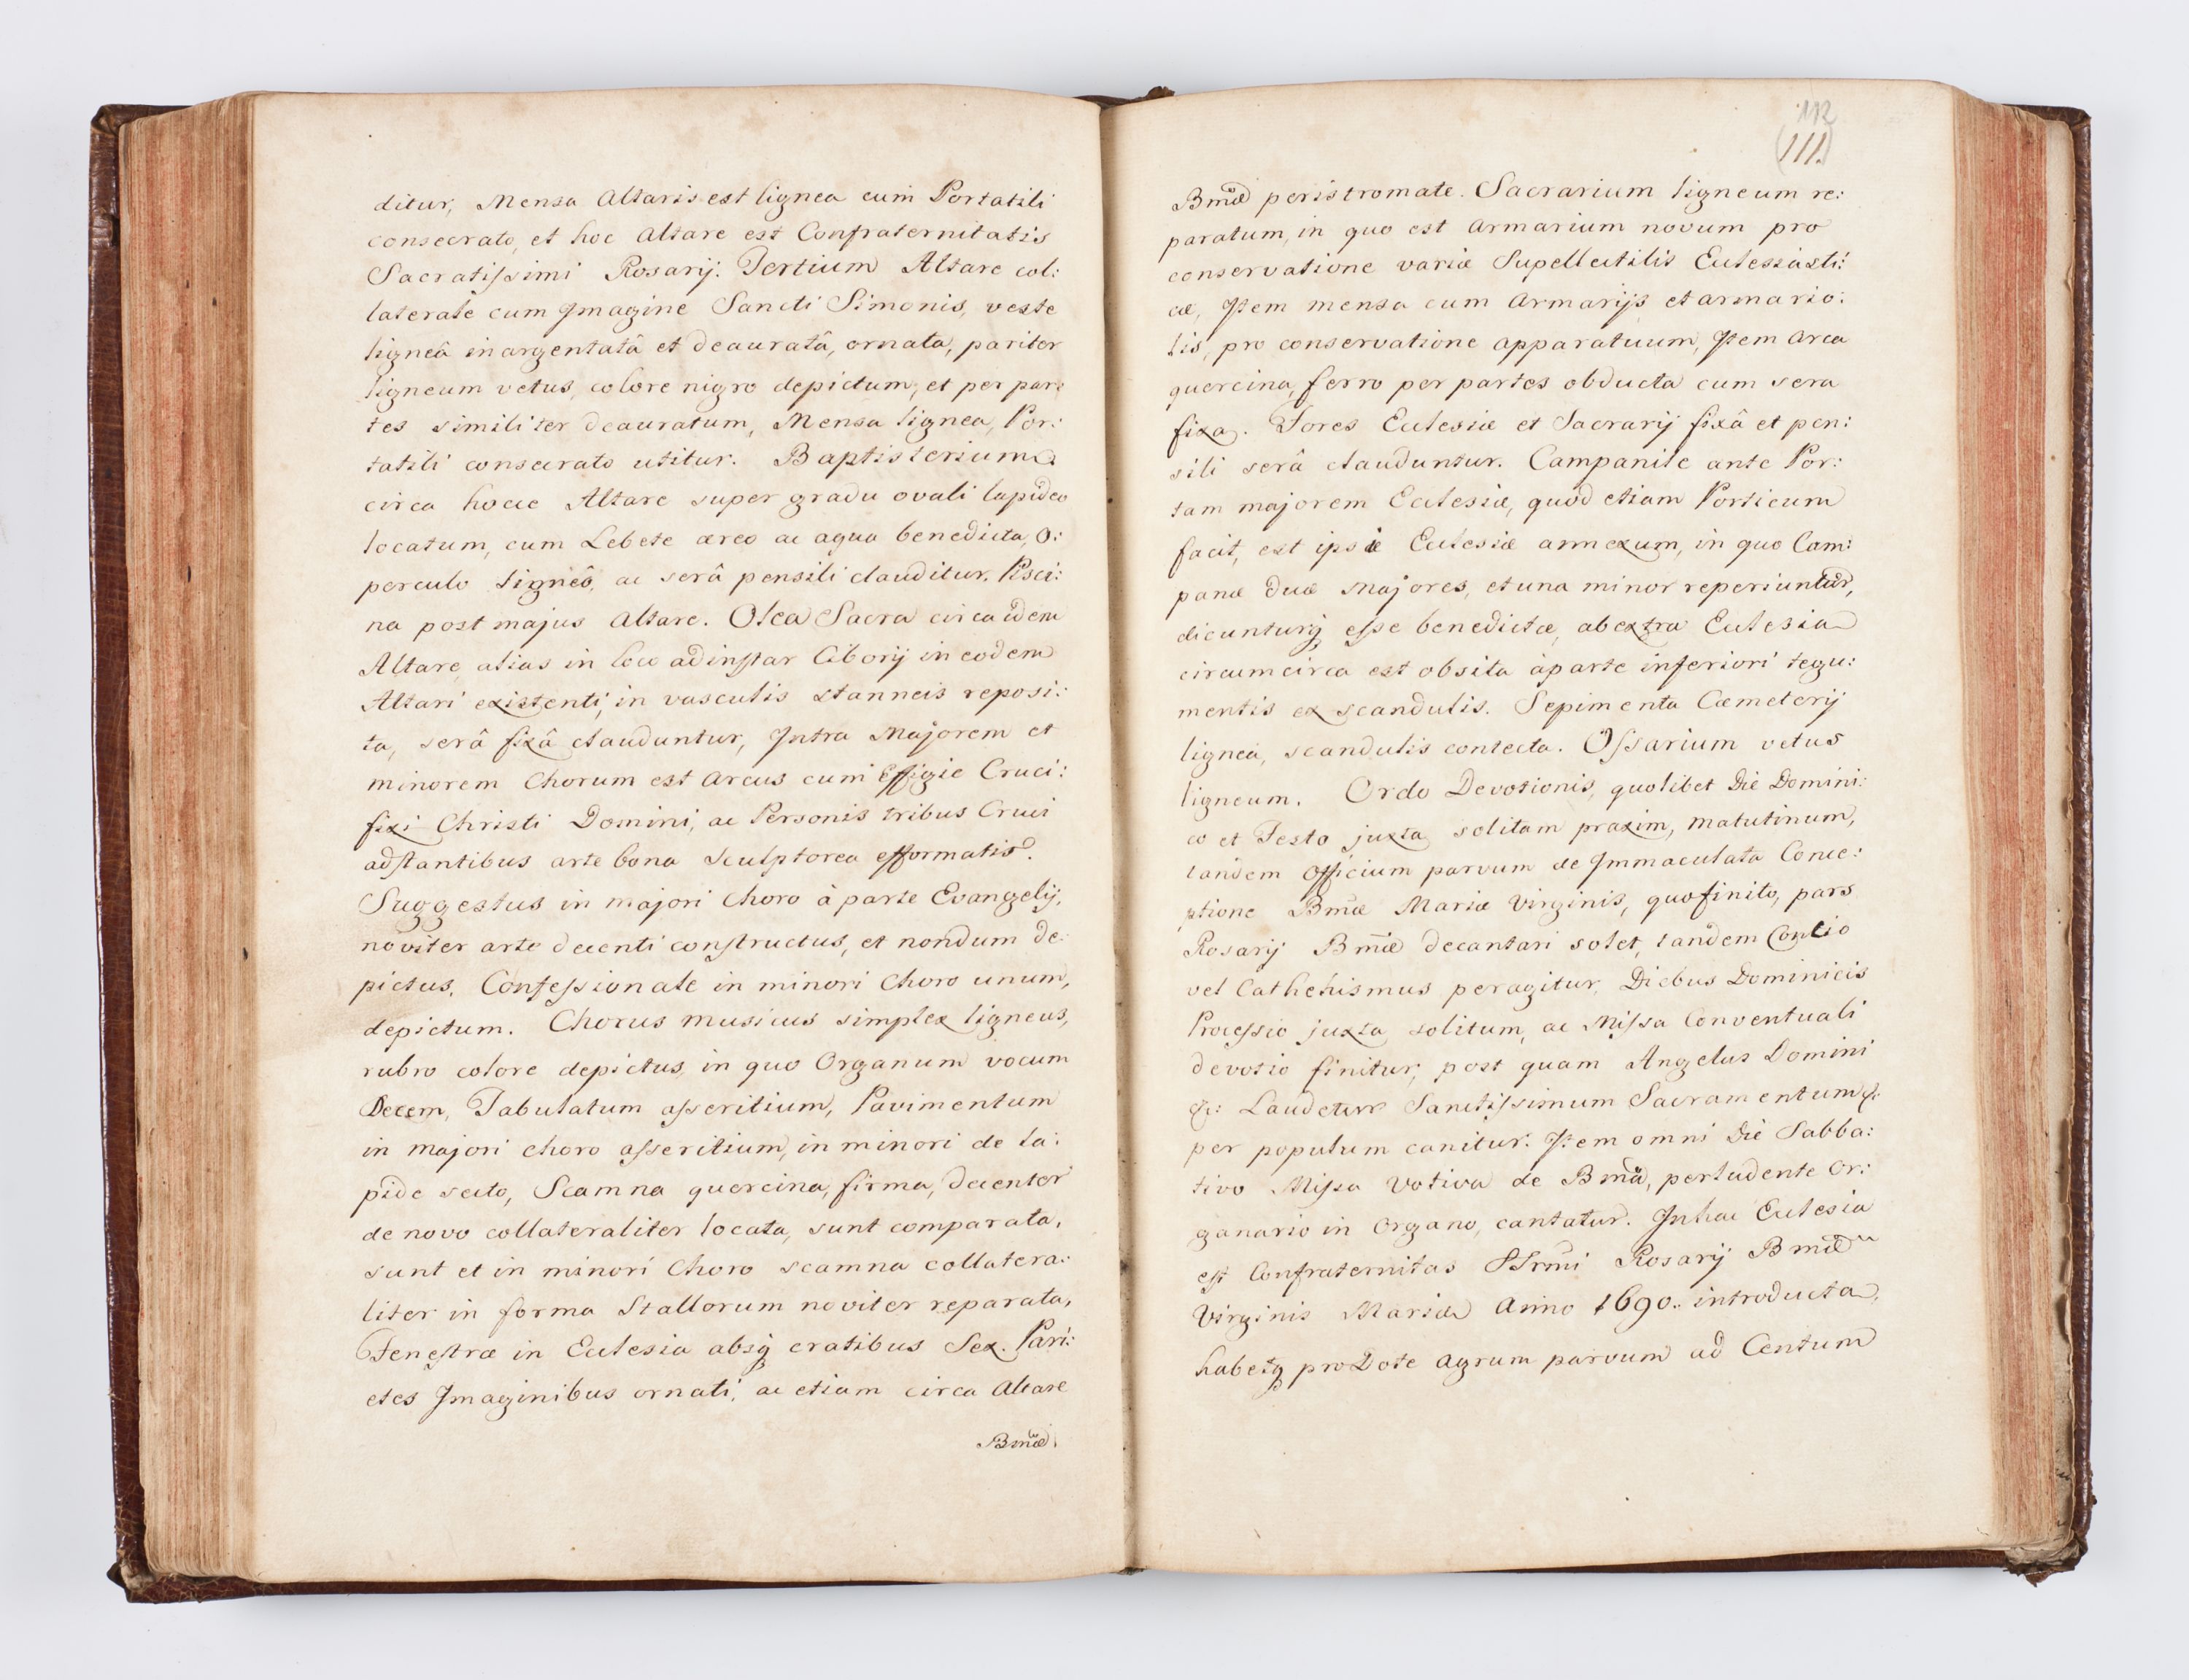 ditur, Mensa Altaris est lignea cum Portatili
consecrato, et hoc Altare est Confraternitatis
Sacratissimi Rosarij. Tertium Altare col:
laterale cum Jmagine Sancti Simonis, veste
ligneâ inargentatâ et deauratâ, ornata, pariter
ligneum vetus, colore nigro depictum, et per par:
tes similiter deauratum, Mensa lignea, Por:
tatili consecrato utitur. Baptisterium
circa hocce Altare super gradu ovali lapideo
locatum, cum Lebete æreo ac aqua benedicta, o:
perculo ligneô, ac serâ pensili clauditur. Pisci:
na post majus Altare. Olea Sacra circa idem
Altare, alias in loco adinstar Ciborij in eodem
Altari existenti, in vasculis stanneis reposi:
ta, serâ fixâ clauduntur, Jntra Majorem et
minorem Chorum est Arcus cum Effigie Cruci:
fixi Christi Domini, ac Personis tribus Cruci
adstantibus arte bona Sculptorea efformatis.
Suggestus in majori Choro à parte Evangelij,
noviter arte decenti constructus, et nondum de:
pictus. Confessionale in minori Choro unum,
depictum. Chorus musicus simplex ligneus,
rubro colore depictus, in quo Organum vocum
Decem, Tabulatum asseritium, Pavimentum
in majori choro asseritium, in minori de la:
pide secto, Scamna quercina, firma, decenter
de novo collateraliter locata, sunt comparata,
sunt et in minori Choro scamna collatera:
liter in forma Stallorum noviter reparata,
Fenestræ in Ecclesia absq cratibus Sex. Pari:
etes Jmaginibus ornati, ac etiam circa Altare
Bmæ
112
(111.)
Bmæ peristromate. Sacrarium ligneum re:
paratum, in quo est Armarium novum pro
conservatione variæ Supellectilis Ecclesiasti:
cæ, Jtem mensa cum Armarijs et armario:
lis, pro conservatione apparatuum, Jtem Arca
quercina, ferro per partes obducta cum sera
fixa. Fores Ecclesiæ et Sacrarij fixâ et pen:
sili serâ clauduntur. Campanile ante Por:
tam majorem Ecclesiæ, quod etiam Porticum
facit, est ipsi Ecclesiæ annexum, in quo Cam:
panæ duæ Majores, et una minor reperiuntur,
dicunturq esse benedictæ, ab extra Ecclesia
circumcirca est obsita à parte inferiori tegu:
mentis ex scandulis. Sepimenta Cæmeterij
lignea, scandulis contecta. Ossarium vetus
ligneum. Ordo Devotionis, quolibet Die Domini:
co et Festo juxta solitam praxim, Matutinum,
tandem Officium parvum de Jmmaculata Conce:
ptione Bmæ Mariæ Virginis, quo finito, pars
Rosarij Bmæ decantari solet, tandem Concio
vel Cathehismus peragitur, Diebus Dominicis
Processio juxta solitum, ac Missa Conventuali
devotio finitur, post quam Angelus Domini
&: Laudetur Sanctissimum Sacramentum &:
per populum canitur. Jtem omni Die Sabba:
tivo Missa Votiva de Bmâ, perludente Or:
ganario in Organo, cantatur. Jn hac Ecclesia
est Confraternitas SSrmi Rosarij Bmæ
Virginis Mariæ Anno 1690. introducta,
habetq pro Dote agrum parvum ad Centum